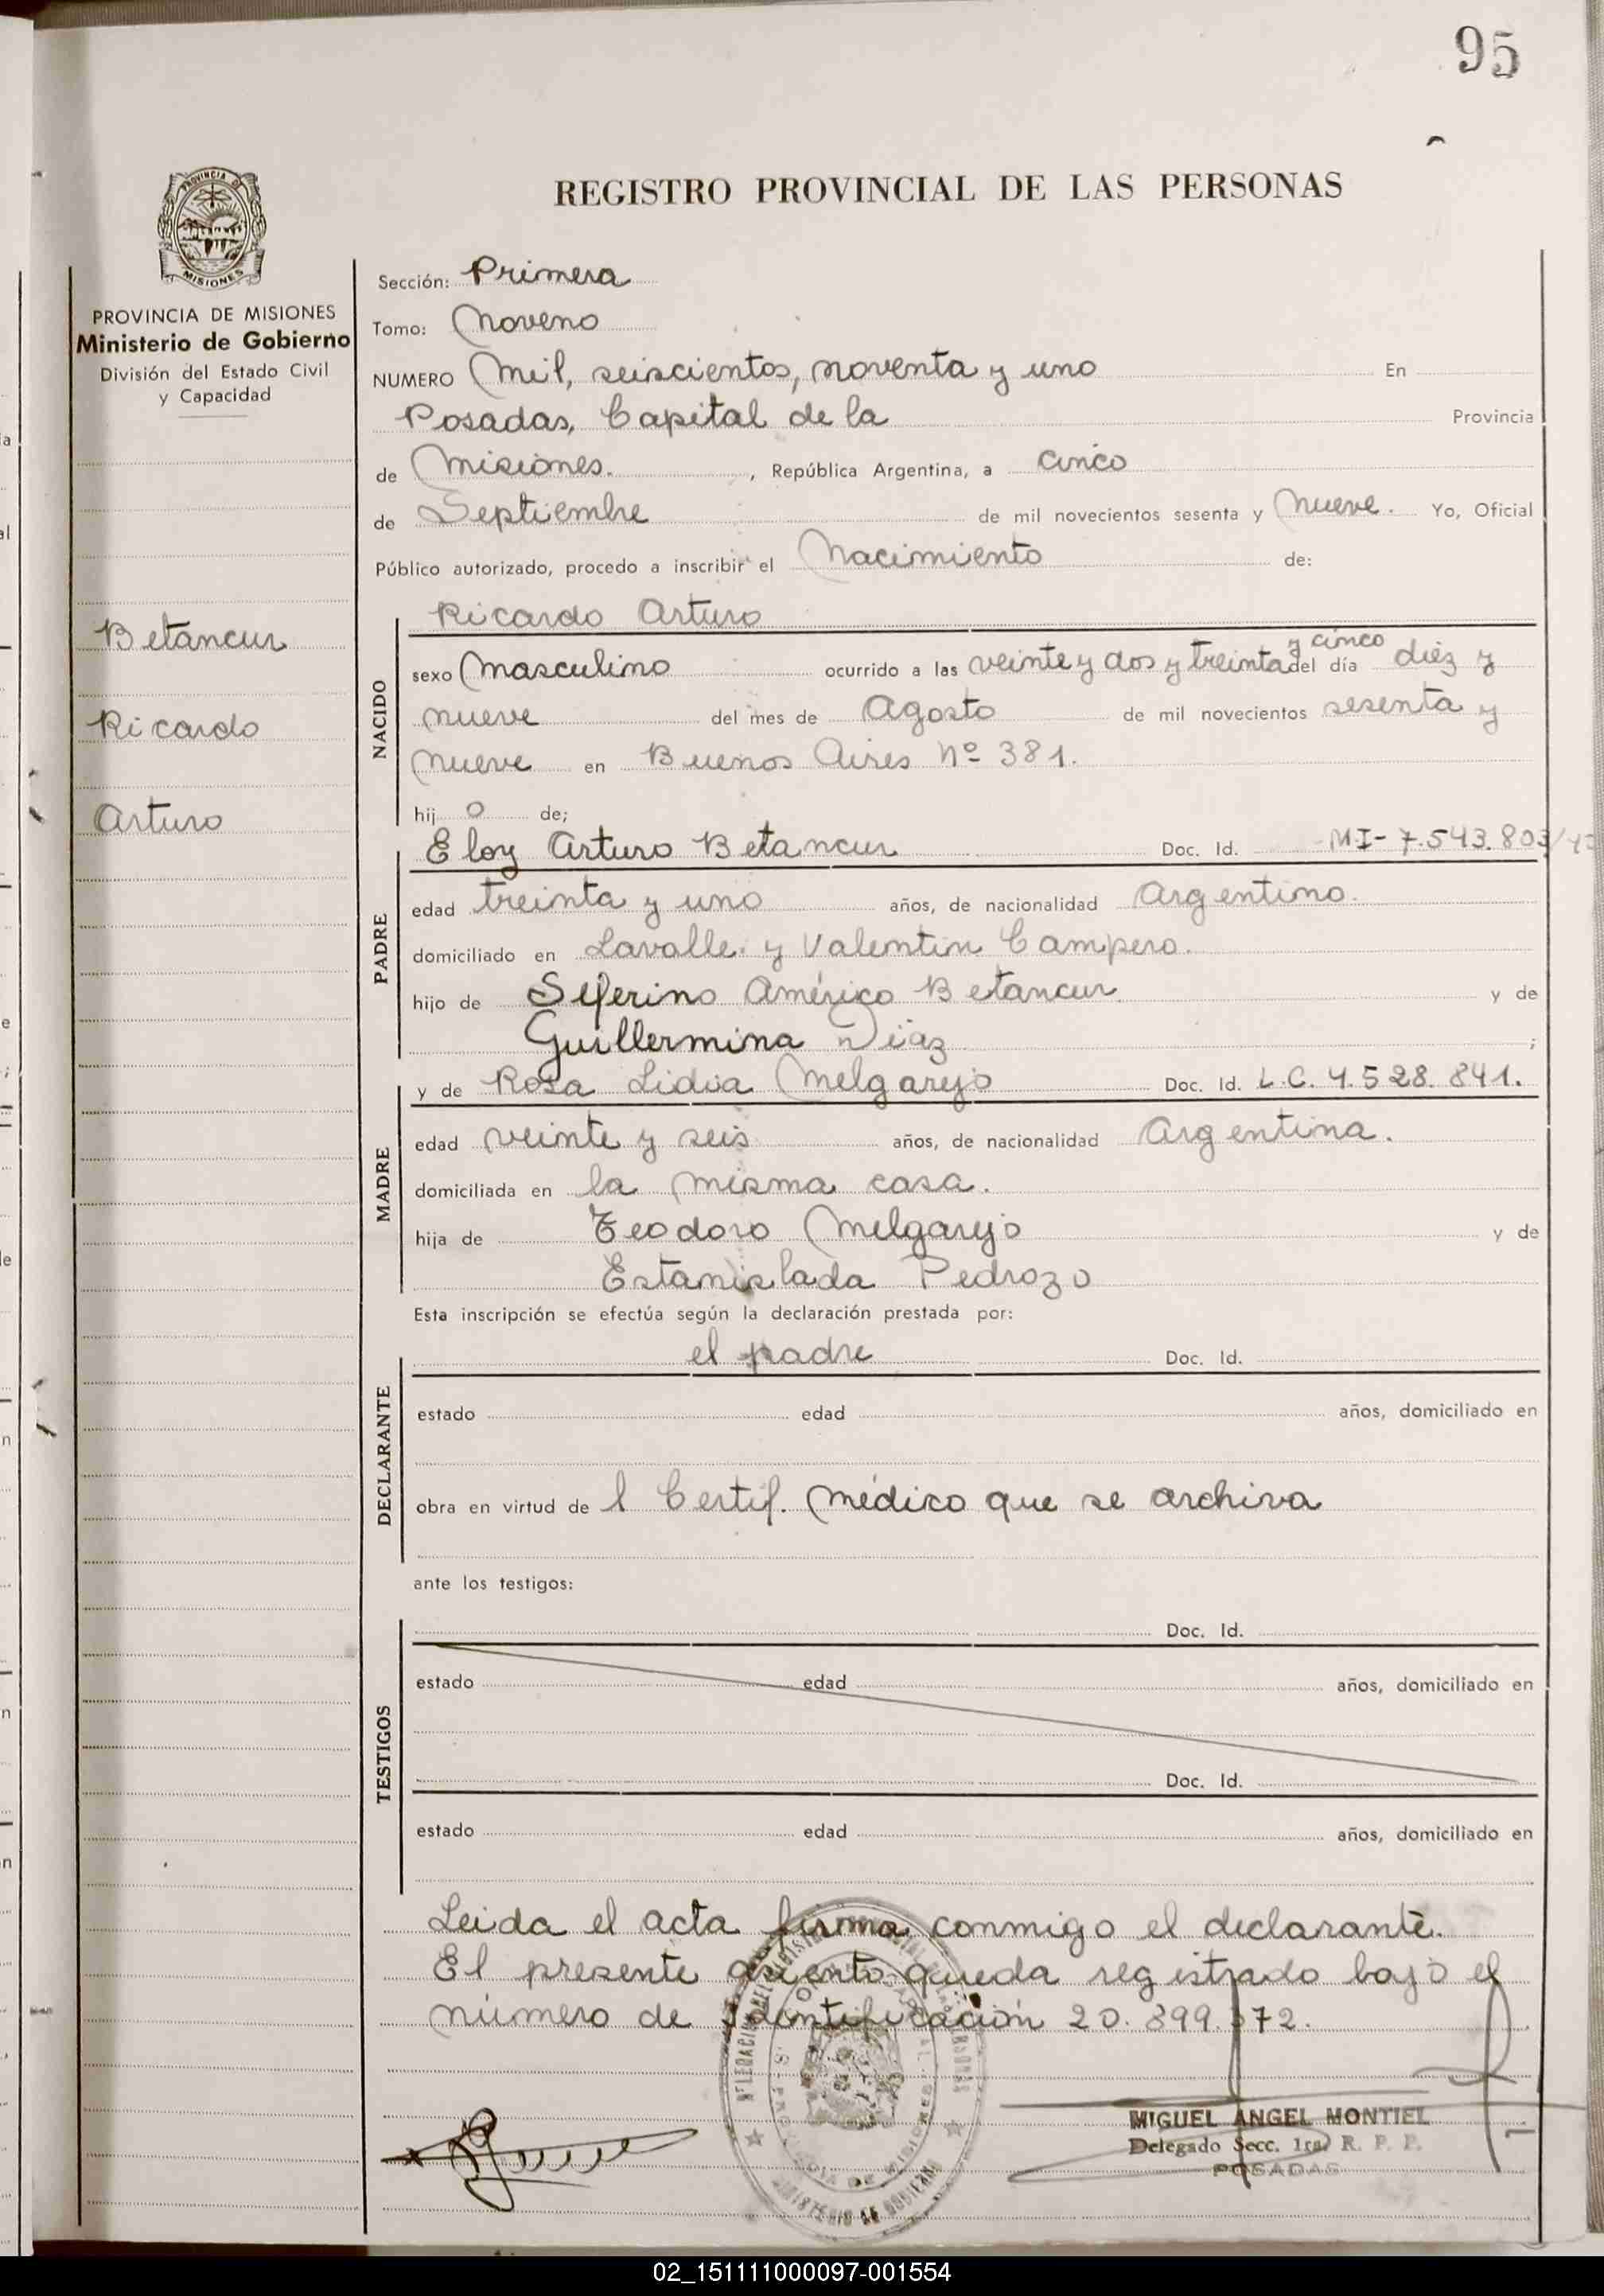 95
PROVINCIA DE
MISIONES
REGISTRO PROVINCIAL DE LAS PERSONAS
PROVINCIA DE MISIONES
Ministerio de Gobierno
División del Estado Civil
y Capacidad
Betancur
Ricardo
Arturo
Sección: Primera
Tomo: Noveno
NUMERO Mil, seiscientos, noventa y uno En
Posadas, Capital de la Provincia
de Misiones. , República Argentina, a cinco
de Septiembre de mil novecientos sesenta y Nueve. Yo, Oficial
Público autorizado, procedo a inscribir el Nacimiento de:
Ricardo Arturo
NACIDO
sexo Masculino ocurrido a las veinte y dos y treinta y cinco del día diez y
nueve del mes de Agosto de mil novecientos sesenta y
Nueve en Buenos Aires Nº 381.
hij o de;
Eloy Arturo Betancur Doc. Id. MI-7.543.803
PADRE
edad treinta y uno años, de nacionalidad Argentino.
domiciliado en Lavalle y Valentin Campero.
hijo de Seferino Américo Betancur y de
Guillermina Diaz ;
y de Rosa Lidia Melgarejo Doc. Id. L.C. 4.528.841.
MADRE
edad veinte y seis años, de nacionalidad Argentina.
domiciliada en la misma casa.
hija de Teodoro Melgarejo y de
Estanislada Pedrozo
Esta inscripción se efectúa según la declaración prestada por:
el padre Doc. Id.
DECLARANTE
estado edad años, domiciliado en
obra en virtud de l Certif. Médico que se archiva
ante los testigos:
Doc. Id.
TESTIGOS
estado edad años, domiciliado en
Doc. Id.
estado edad años, domiciliado en
Leida el acta firma conmigo el declarante.
El presente asiento queda registrado bajo el
número de Identificación 20.899.372.
MIGUEL ANGEL MONTIEL
Delegado Secc. 1ra. R. P. P.
POSADAS
02_151111000097-001554